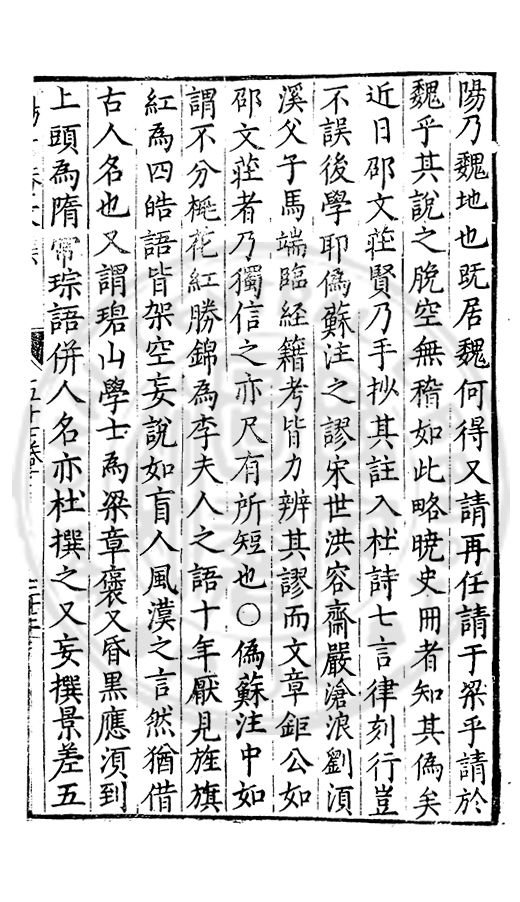 陽乃魏地也旣居魏何得又請再任請于梁乎請於
魏乎其說之脫空無稽如此略曉史冊者知其偽矣
近日邵文莊賢乃手抄其註入杜詩七言律刻行豈
不誤後學耶偽蘇注之謬宋世洪容齋嚴滄浪劉湏
溪父子馬端臨経籍考皆力辨其謬而文章鉅公如
邵文莊者乃獨信之亦尺有所短也○偽蘇注中如
謂不分桃花紅勝錦為李夫人之語十年厭見旌旗
紅為四皓語皆架空妄說如盲人風漢之言然猶借
古人名也又謂碧山學士為梁章褒又昏黑應湏到
上頭為隋常琮語併人名亦杜撰之又妄撰景差五